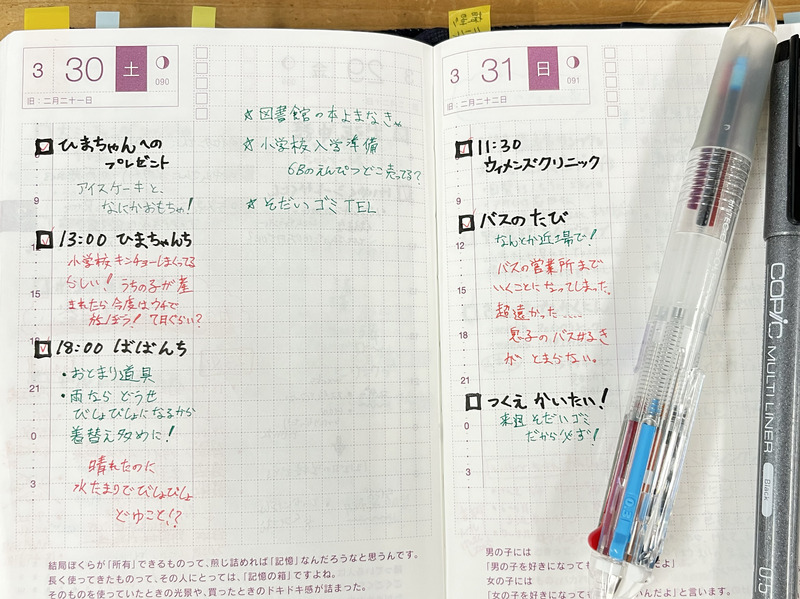 3 30 土
090
旧:二月二十一日
ひまちゃんへの
プレゼント
アイスケーキと、
なにかおもちゃ!
9
13:00 ひまちゃんち
小学校 キンチョーしまくってる
らしい! うちの子が産
まれたら今度はウチで
放ぼう! 7日ぐらい?
15
18:00 ばばんち
・おとまり道具
・雨なら どうせ
びしょびしょになるから
着替え多めに!
21
0
3
晴れたのに
水たまりでびしょびしょ
どゆこと!?
☆図書館の本よまなきゃ
☆小学校入学準備
6Bのえんぴつどこ売ってる?
☆そだいゴミ TEL
結局ぼくらが「所有」できるものって、煎じ詰めれば「記憶」なんだろうなと思うんです。
長く使ってきたものって、その人にとっては、「記憶の箱」ですよね。
そのものを使っていたときの光景や、買ったときのドキドキ感が詰まった。
3 31 日
091
旧:二月二十二日
11:30
ウィメンズクリニック
9
バスのたび
なんとか近場で!
12
バスの営業所まで
いくことになってしまった。
15
超遠かった....
18
息子のバス好き
が とまらない。
21
つくえ かいたい!
来週 そだいゴミ
だから必ず!
0
3
男の子には
「男の子を好きになっても
女の子には
「女の子を好きになって
んだよ」と言います。
COPIC MULTI LINER
Black
0.5
0.31